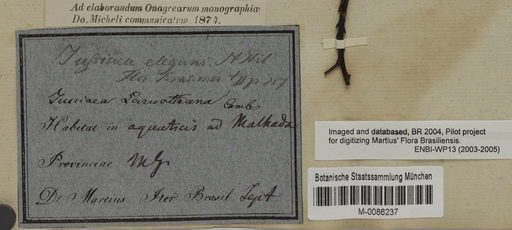 Ad elaborandum Onagrearum monographiæ
Do. Micheli communicatum. 1874.
Jussiaea elegans. St Hil
Flor. Bras. mer. II p. 257
Jussiaea Lacuotteana Camb.
Habitat in aquaticis ad Malhada
Provinciae MG
Dr Martius Iter Brasil. Sept
Imaged and databased, BR 2004, Pilot project
for digitizing Martius' Flora Brasiliensis.
ENBI-WP13 (2003-2005)
Botanische Staatssammlung München
M-0086237